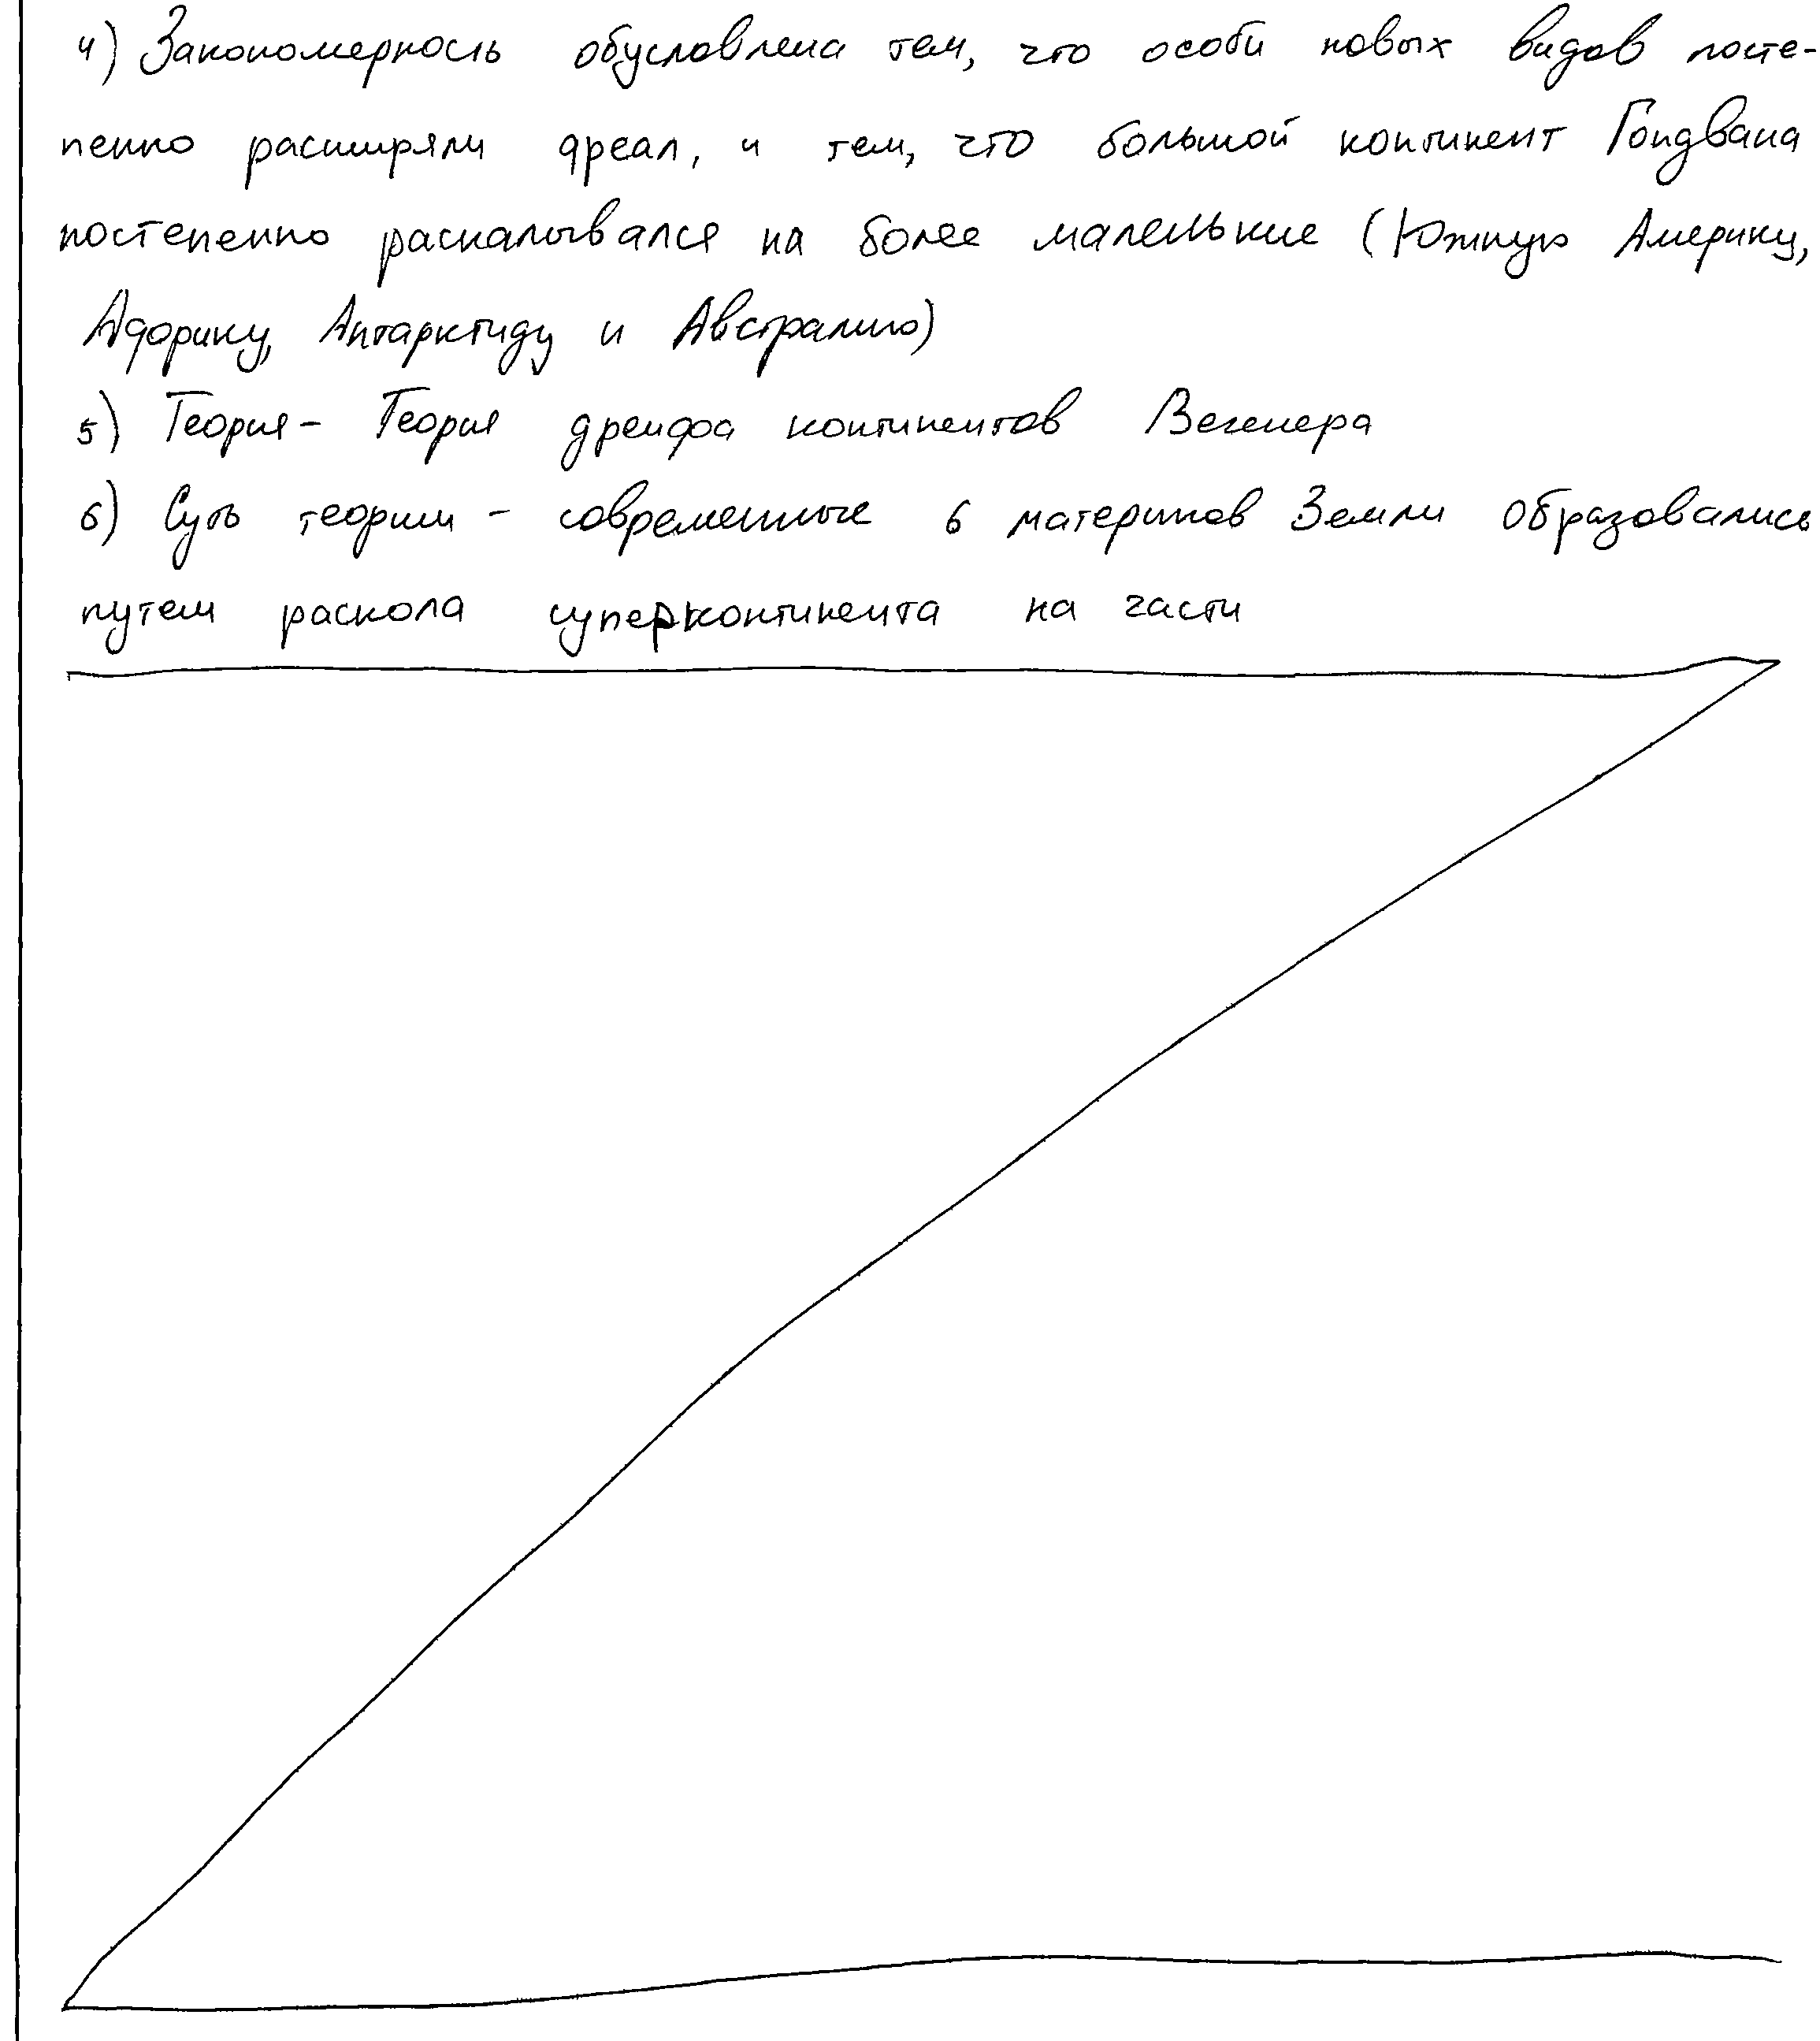 4) Закономерность обусловлена тем, что особи новых видов посте-
пенно расширяли ареал, и тем, что большой континент Гондвана
постепенно раскалывался на более маленькие (Южную Америку,
Африку, Антарктиду и Австралию)
5) Теория - Теория дрейфа континентов Вегенера
6) Суть теории - современные 6 материков Земли образовались
путем раскола суперконтинента на части